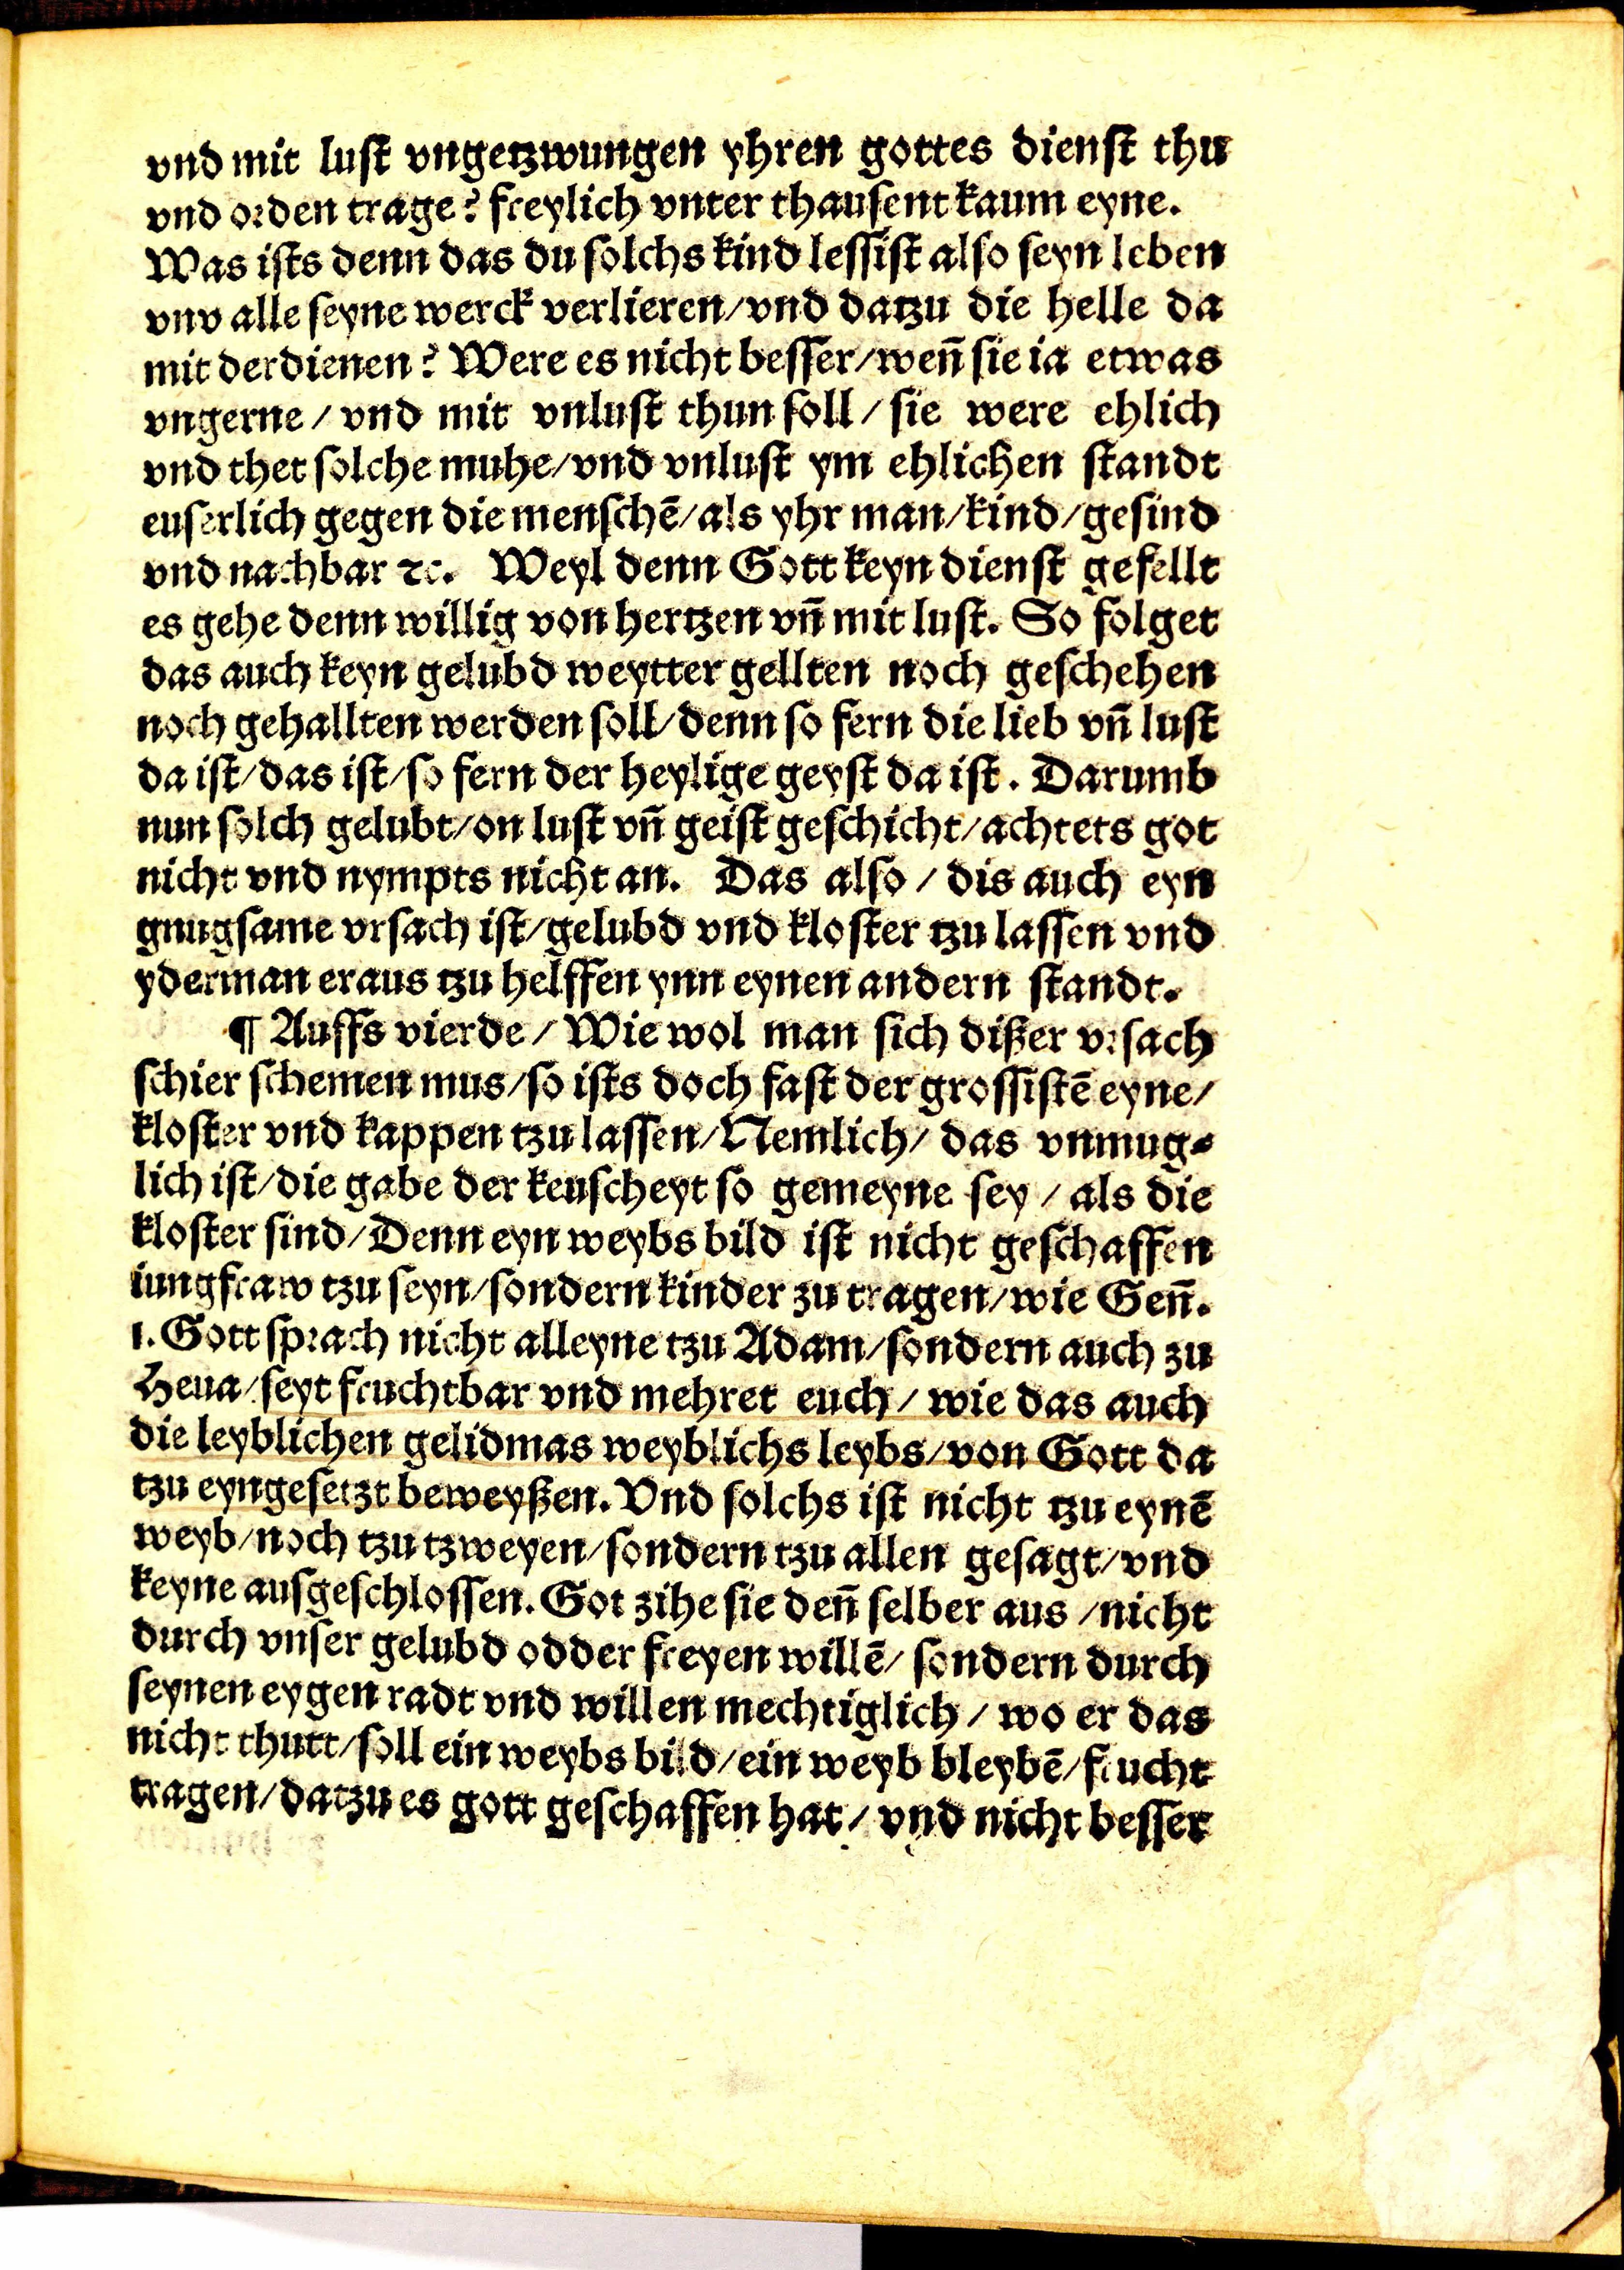 vnd mit lust vngetzwungen yhren gottes dienst thu
vnd orden trage? freylich vnter thausent kaum eyne.
Was ists denn das du solchs kind lessist also seyn leben
vnv alle seyne werck verlieren/vnd datzu die helle da
mit derdienen? Were es nicht besser/weñ sie ia etwas
vngerne/ vnd mit vnlust thun soll/ sie were ehlich
vnd thet solche muhe/vnd vnlust ym ehlichen standt
euserlich gegen die menschē/als yhr man/kind/gesind
vnd nachbar ⁊c. Weyl denn Gott keyn dienst gefellt
es gehe denn willig von hertzen vñ mit lust. So folget
das auch keyn gelubd weytter gellten noch geschehen
noch gehallten werden soll/denn so fern die lieb vñ lust
da ist/das ist/so fern der heylige geyst da ist. Darumb
nun solch gelubt/on lust vñ geist geschicht/achtets got
nicht vnd nympts nicht an. Das also / dis auch eyn
gnugsame vrsach ist/gelubd vnd kloster tzu lassen vnd
yderman eraus tzu helffen ynn eynen andern standt.
¶ Auffs vierde / Wie wol man sich dißer vrsach
schier schemen mus/so ists doch fast der grossistē eyne/
kloster vnd kappen tzu lassen/Nemlich/ das vnmug⸗
lich ist/die gabe der keuscheyt so gemeyne sey / als die
kloster sind/Denn eyn weybs bild ist nicht geschaffen
iungfraw tzu seyn/sondern kinder zu tragen/wie Geñ.
1. Gott sprach nicht alleyne tzu Adam/sondern auch zu
Heua/seyt fruchtbar vnd mehret euch/ wie das auch
die leyblichen gelidmas weyblichs leybs/von Gott da
tzu eyngesetzt beweyßen. Vnd solchs ist nicht tzu eynē
weyb/noch tzu tzweyen/sondern tzu allen gesagt/vnd
keyne ausgeschlossen. Got zihe sie deñ selber aus /nicht
durch vnser gelubd odder freyen willē/ sondern durch
seynen eygen radt vnd willen mechtiglich/ wo er das
nicht thutt/soll ein weybs bild/ein weyb bleybē/frucht
tragen/datzu es gott geschaffen hat/ vnd nicht besser